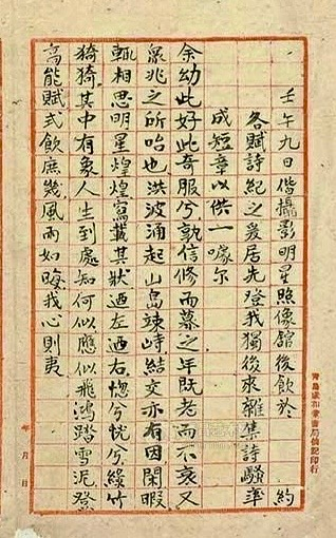 壬午九日偕攝影明星照像館後飲於 約
各賦詩紀之爰居先登我獨後來雜集詩騷率
成短章以供一噱尔
余幼此好此奇服兮孰信修而慕之年既老而不衰又
衆兆之所咍也洪波涌起山島竦峙結交亦有因閑暇
輒相思明星煌煌寫載其狀迺左迺右惚兮恍兮綠竹
猗猗其中有象人生到處知何似應似飛鴻踏雪泥登
高能賦式飲庶幾風雨如晦我心則夷
年 月 日